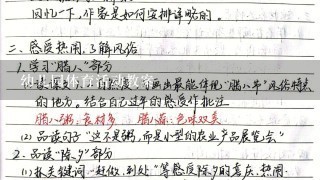 回忆一下,作家是如何安排详略的。
二、感受热闹,了解风俗
1. 学习“腊八”部分
出最能体现“腊八节”风俗特点
的地方。结合自己过年的感受作批注
腊八粥:食材多 腊八蒜:色味双美
(2) 品读句子“这不是粥,而是小型的农业产品展览会”
2. 品读“除夕”部分
(1) 抓关键词“赶做、到处”等感受除夕的喜庆、热闹
幼儿园体育活动教案